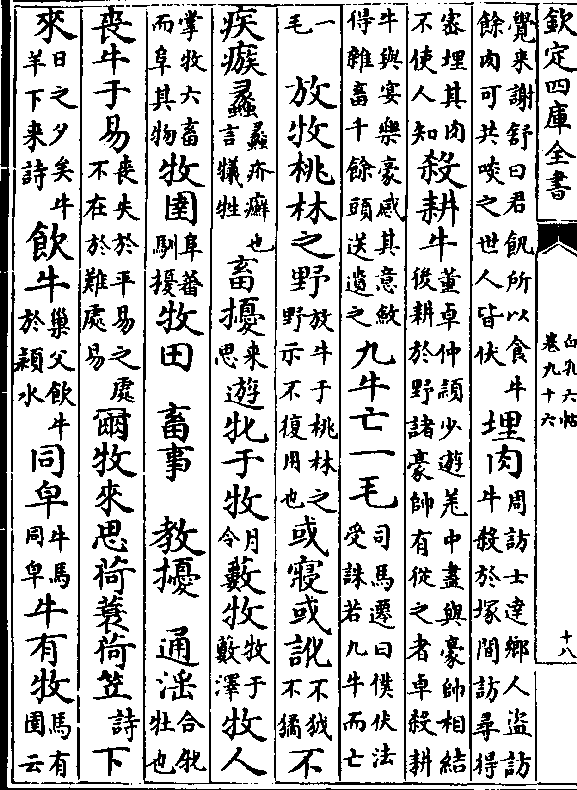 欽定四庫全書 白孔六帖 卷九十六 十八
覺來謝舒曰君飢所以食牛餘肉可共啖之世人皆伏 埋肉 周訪士達鄉人盜訪牛殺於塚間訪尋得
密埋其肉不使人知 殺耕牛 董卓仲穎少遊羌中盡與豪帥相結後耕於野諸豪帥有從之者卓殺耕
牛與宴樂豪感其意斂得雜畜千餘頭送遺之 九牛亡一毛 司馬遷曰僕伏法受誅若九牛而亡
一毛 放牧桃林之野 放牛于桃林之野示不復用也 或寢或訛 不狘不獝 不
疾瘯蠡 蠡疥癬也言犧牲 畜擾 来思 遊牝于牧 月令 藪牧 牧于藪澤 牧人
掌牧六畜而阜其物 牧圉 阜蕃馴擾 牧田 畜事 教擾 通淫 合牝牡也
喪牛于易 喪失於平易之處不在於難處易 爾牧來思荷蓑荷笠 詩 下
來 日之夕矣牛羊下来詩 飲牛 巢父飲牛於潁水 同皁 牛馬同皁 牛有牧 馬有圉云